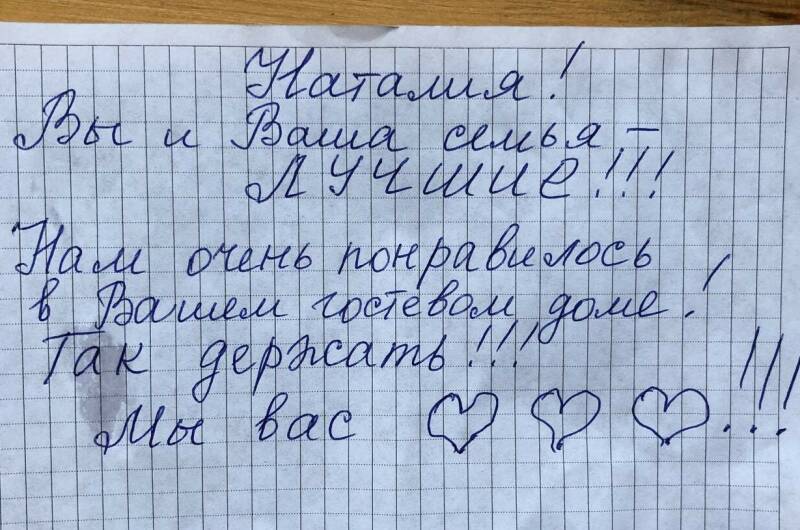 Наталия!
Вы и Ваша семья –
ЛУЧШИЕ!!!
Нам очень понравилось
в Вашем гостевом доме!
Так держать!!!
Мы вас ♡ ♡ ♡!!!